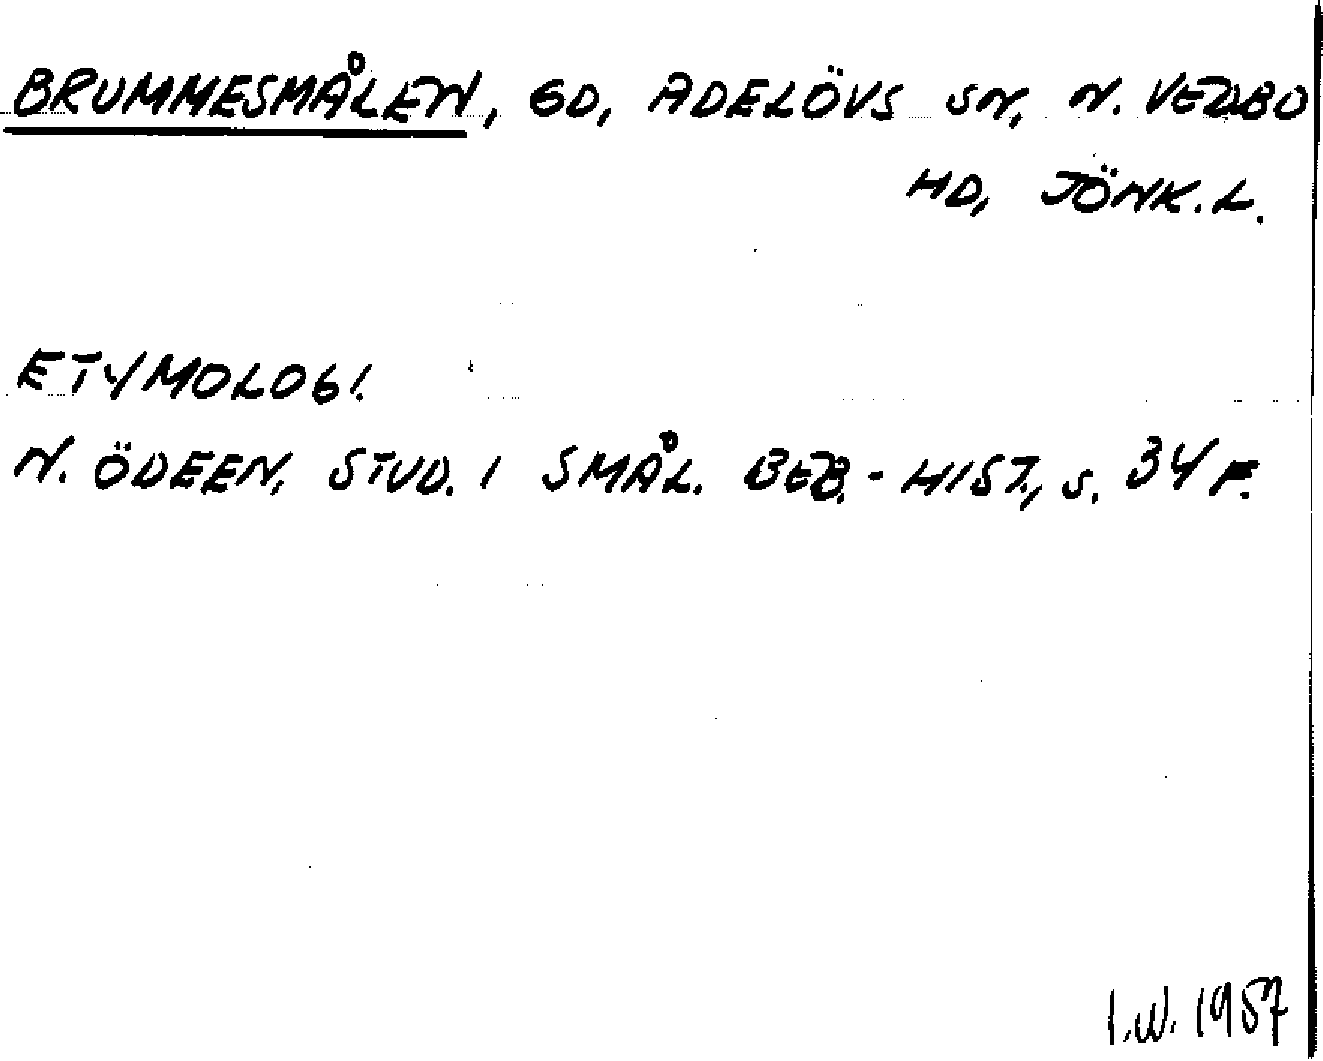 BRUMMESMÅLEN, GD, ADELÖVS SN, N. VEDBO
HD, JÖNK.L.
ETYMOLOGI.
N. ÖDEEN, STUD. I SMÅL. BEB.-HIST., S. 34 F.
I.W. 1987